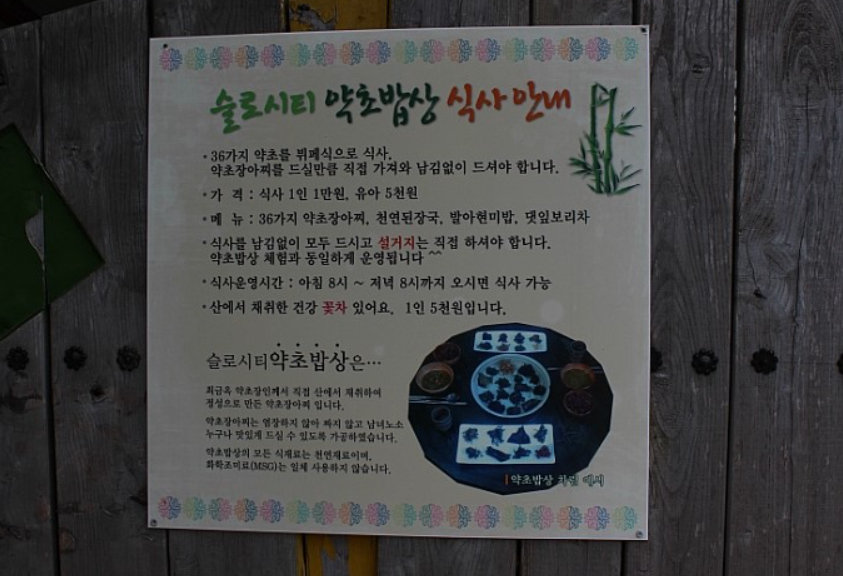 슬로시티 약초밥상 식사 안내
• 36가지 약초를 뷔페식으로 식사.
약초장아찌를 드실만큼 직접 가져와 남김없이 드셔야 합니다.
• 가 격 : 식사 1인 1만원, 유아 5천원
• 메 뉴 : 36가지 약초장아찌, 천연된장국, 발아현미밥, 댓잎보리차
• 식사를 남김없이 모두 드시고 설거지는 직접 하셔야 합니다.
약초밥상 체험과 동일하게 운영됩니다 ^^
• 식사운영시간 : 아침 8시 ~ 저녁 8시까지 오시면 식사 가능
• 산에서 채취한 건강 꽃차 있어요. 1인 5천원입니다.
슬로시티약초밥상은…
최금옥 약초장인께서 직접 산에서 채취하여
정성으로 만든 약초장아찌 입니다.
약초장아찌는 염장하지 않아 짜지 않고 남녀노소
누구나 맛있게 드실 수 있도록 가공하였습니다.
약초밥상의 모든 식재료는 천연재료이며,
화학조미료(MSG)는 일체 사용하지 않습니다.
약초밥상 차림 예시